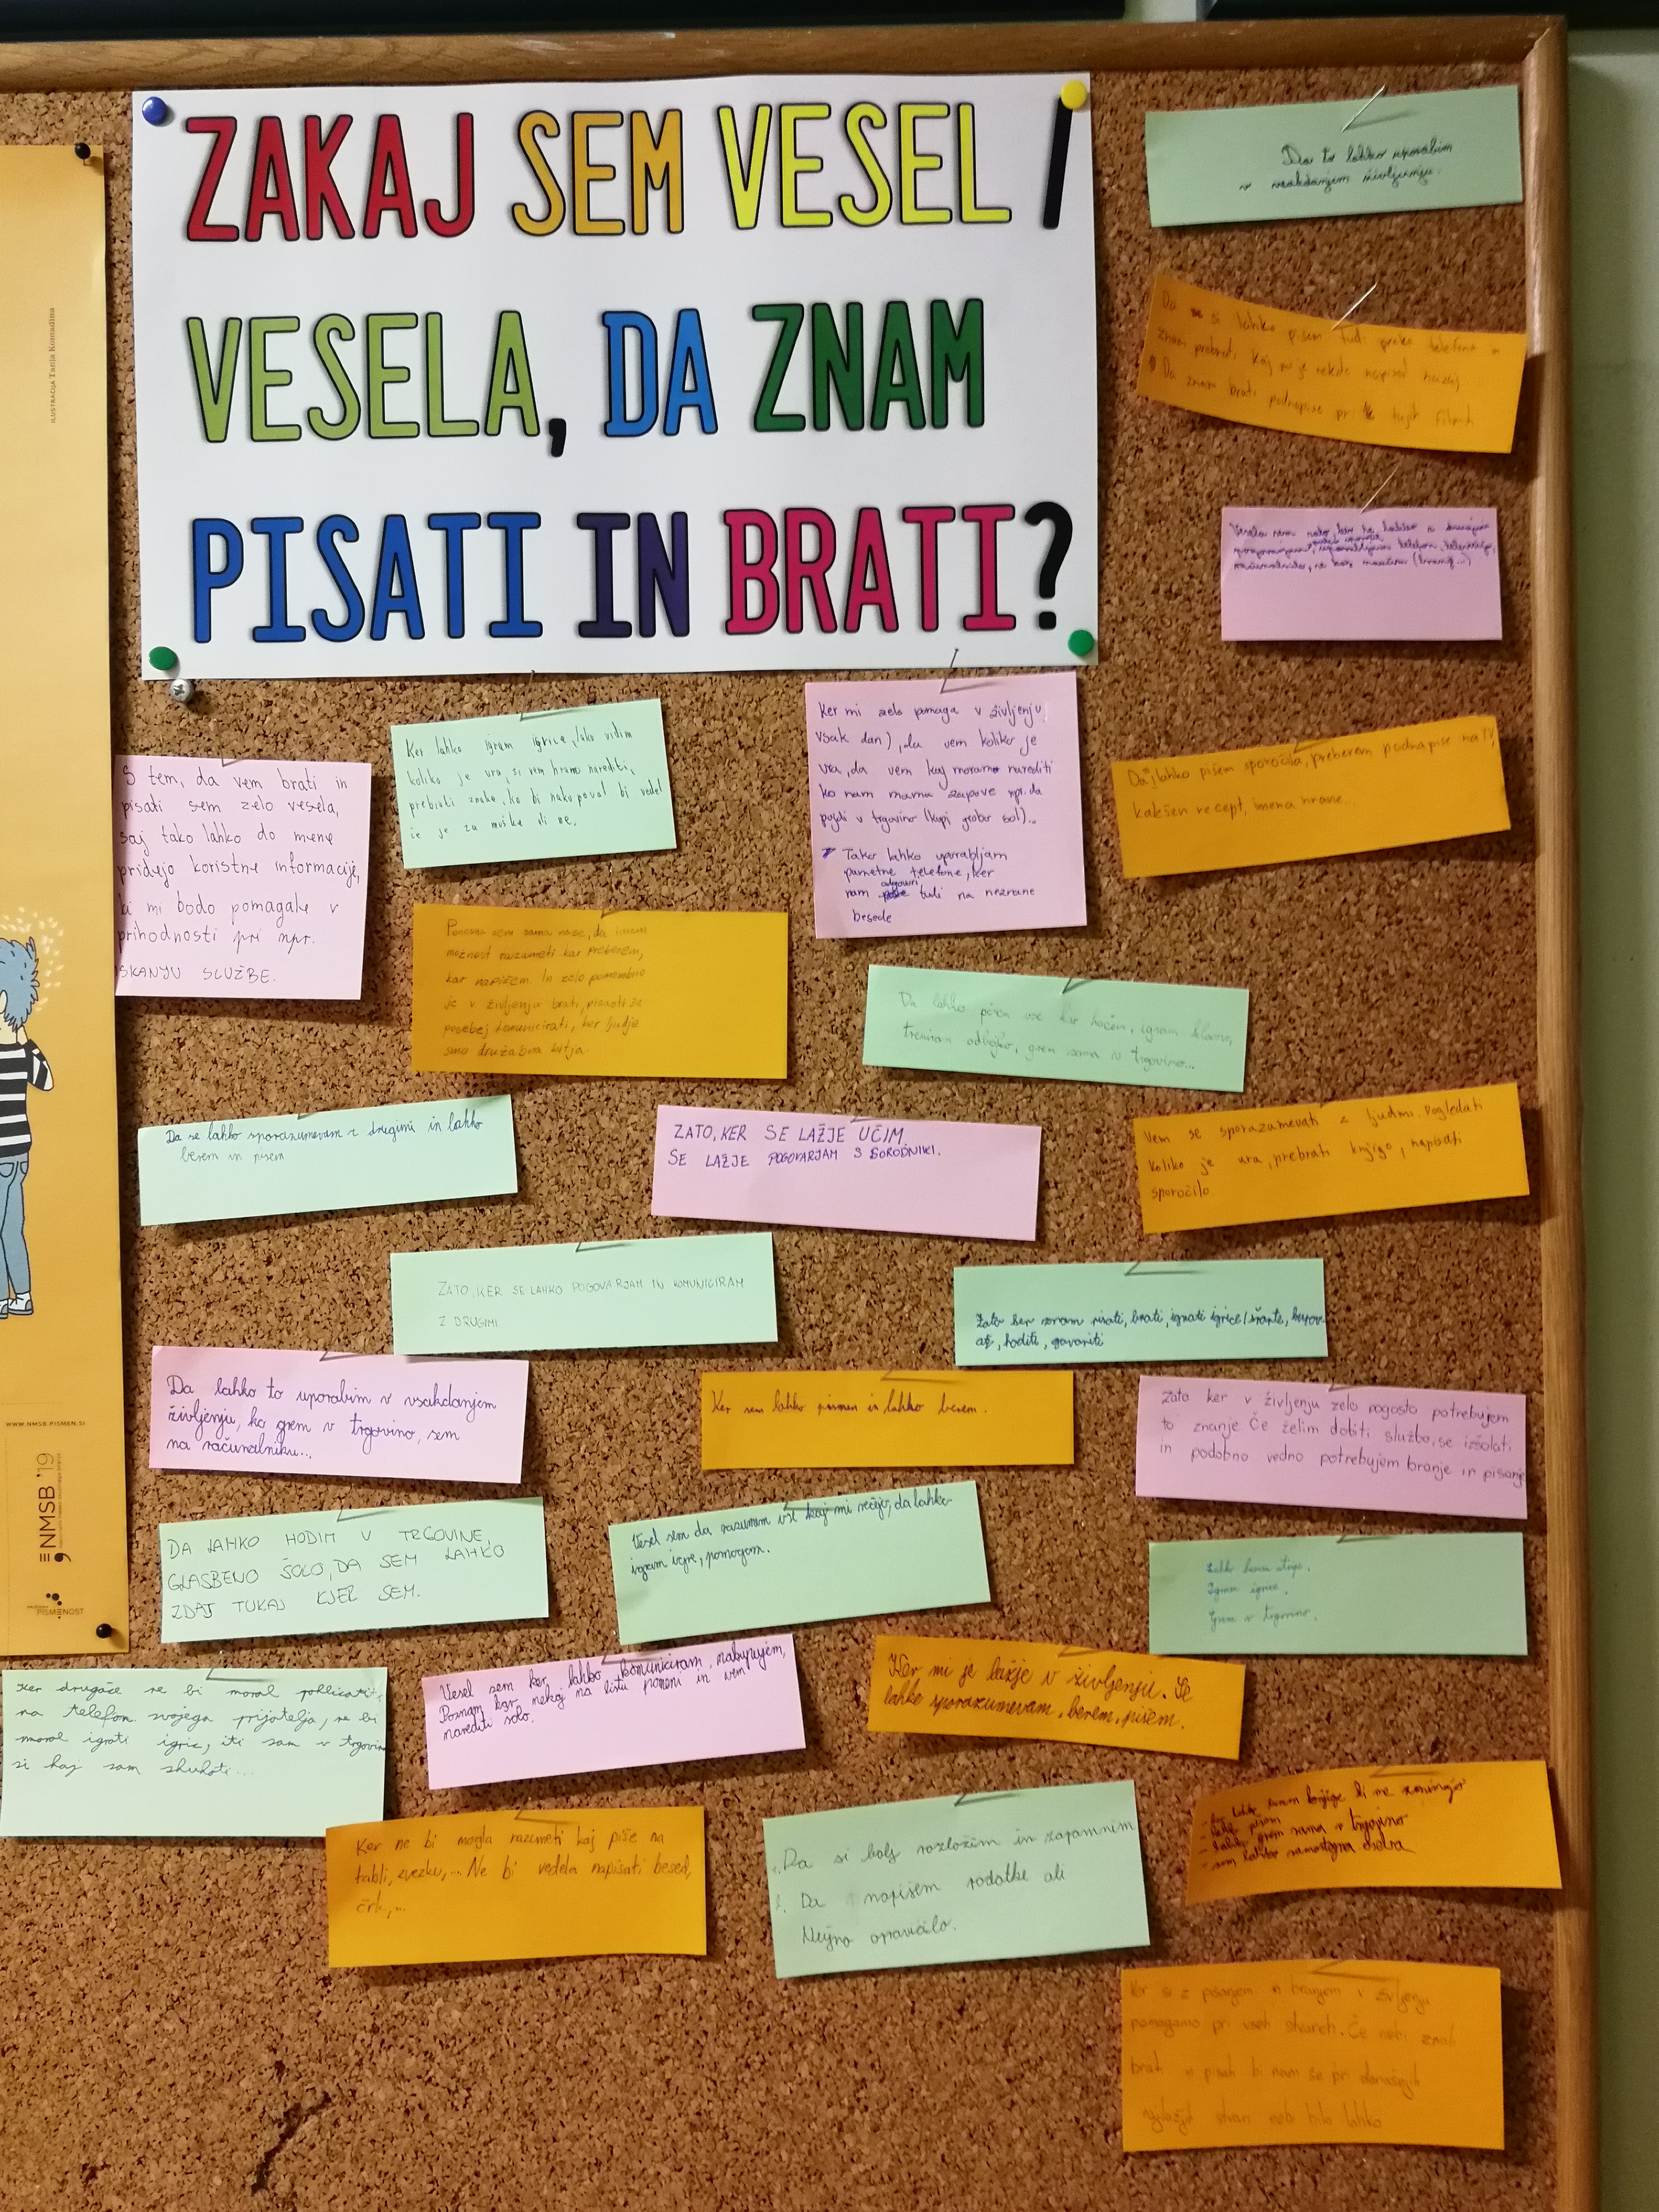 ZAKAJ SEM VESEL /
VESELA, DA ZNAM
PISATI IN BRATI?
ILUSTRACIJA Tanja Komadina
WWW.NMSB.PISMEN.SI
NMSB '19
PISMENOST
Da to lahko uporabim
v vsakdanjem življenju.
Da si lahko pišem tudi preko telefona in
znam prebrati kaj mi je nekdo napisal nazaj
Da znam brati podnapise pri tujih filmih
Vesela sem zato, ker se lahko z drugimi
telefon, televizijo,
S tem, da vem brati in
pisati sem zelo vesela,
saj tako lahko do mene
pridejo koristne informacije,
ki mi bodo pomagale v
prihodnosti pri npr.
ISKANJU SLUŽBE.
Ker lahko igram igrice, lako vidim
koliko je ura, si vem hrano narediti,
prebrati znake, ko bi nakupoval bi vedel
če je za moške ali ne.
Ker mi zelo pomaga v življenju
vsak dan), da vem koliko je
ura, da vem kaj moramo narediti
ko nam mama zapove npr. da
pojdi v trgovino (kupi grobo sol)...
Tako lahko uporabljam
pametne telefone, ker
nam odgovori tudi na neznane
besede
Daj lahko pišem sporočila, preberem podnapise na TV,
kakšen recept, imena hrane...
Ponosna sem sama nase, da imam
možnost razumeti kar preberem,
kar napišem. In zelo pomembno
je v življenju brati, pisati še
posebej komunicirati, ker ljudje
smo družabna bitja.
Da lahko pišem vse kar hočem, igram klavir,
treniram odbojko, grem sama v trgovino...
Da se lahko sporazumevam z drugimi in lahko
berem in pišem
ZATO, KER SE LAŽJE UČIM.
SE LAŽJE POGOVARJAM S SORODNIKI.
Vem se sporazumevati z ljudmi. Pogledati
koliko je ura, prebrati knjigo, napisati
sporočilo.
ZATO, KER SE LAHKO POGOVARJAM IN KOMUNICIRAM
Z DRUGIMI
Zato ker znam pisati, brati, igrati igrice/karte, kupov-
ati, hoditi, govoriti
Da lahko to uporabim v vsakdanjem
življenju, ko grem v trgovino, sem
na računalniku...
Ker sem lahko pismen in lahko berem.
Zato ker v življenju zelo pogosto potrebujem
to znanje Če želim dobiti službo, se izšolati
in podobno vedno potrebujem branje in pisanje
DA LAHKO HODIM V TRGOVINE,
GLASBENO ŠOLO, DA SEM LAHKO
ZDAJ TUKAJ KJER SEM.
Vesel sem da razumem vse kaj mi rečejo, da lahko
igram igre, pomagam.
Lahko berem stripe.
Igram igrice.
Grem v trgovino.
Ker drugače ne bi moral poklicati
na telefon svojega prijatelja, ne bi
moral igrati igric, iti sam v trgovino
si kaj sam skuhati...
Vesel sem ker lahko komuniciram, nakupujem,
Poznam kar nekaj na listu pomeni in vem
narediti šolo.
Ker mi je lažje v življenju. Se
lahko sporazumevam, berem, pišem.
Ker ne bi mogla razumeti kaj piše na
tabli, zvezku,... Ne bi vedela napisati besed,
črk,...
1. Da si bolj razložim in zapomnim
2. Da napišem podatke ali
Nujno opravičilo.
- ker lahko berem knjige ki me zanimajo
- lahko pišem
- lahko grem sama v trgovino
- sem lahko samostojna oseba
Ker si z pisanjem in branjem v življenju
pomagamo pri vseh stvareh. Če nebi znali
brati in pisati bi nam še pri današnjih
najlažjih stvari nebi bilo lahko